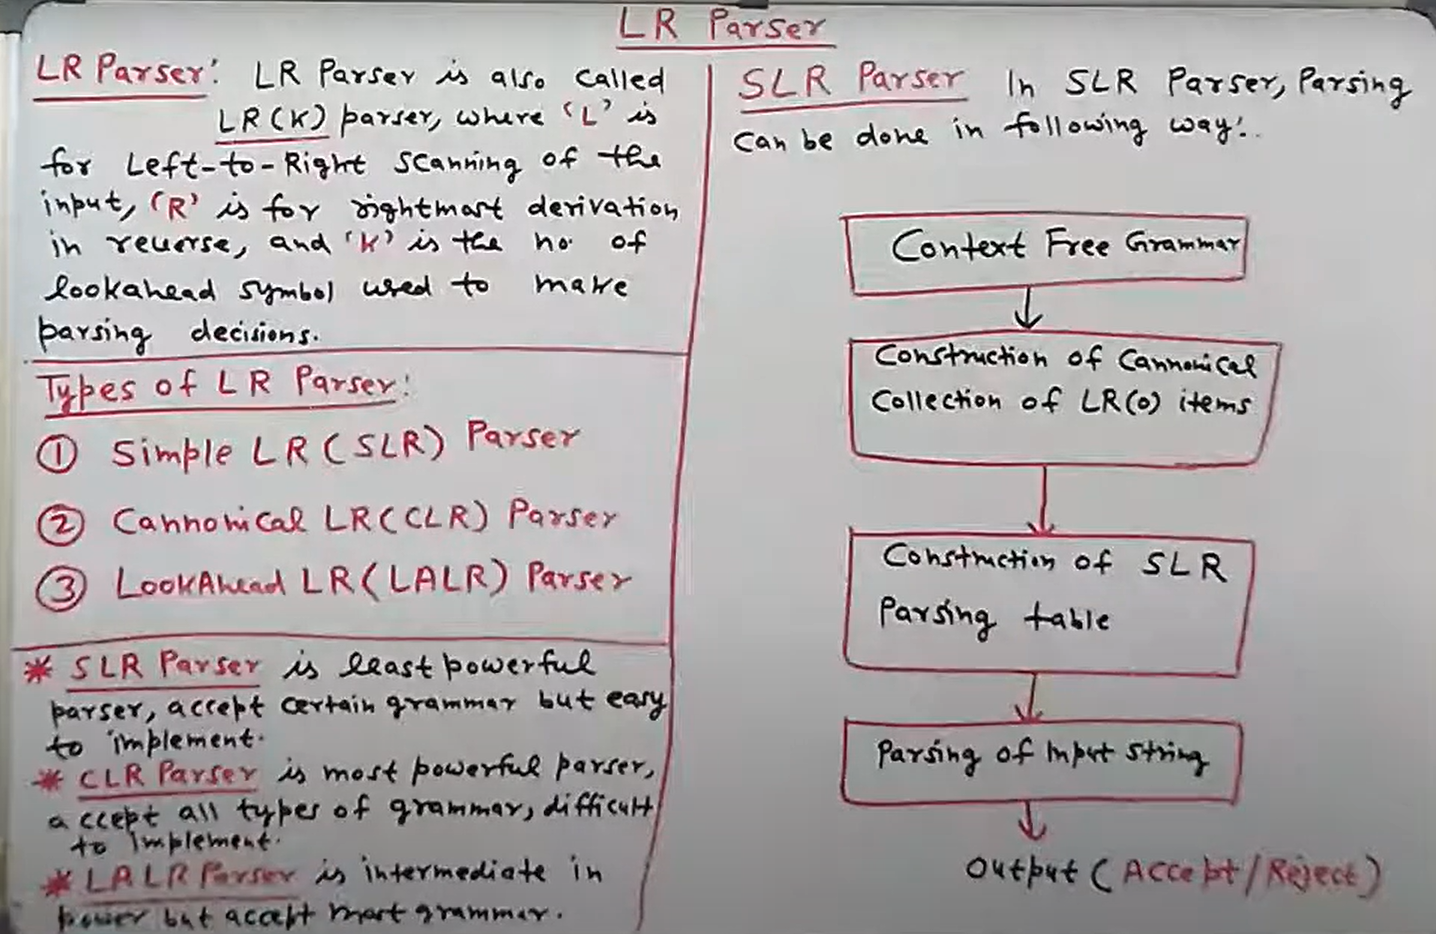 LR Parser
LR Parser: LR Parser is also called
LR(K) parser, where 'L' is
for Left-to-Right scanning of the
input, 'R' is for rightmost derivation
in reverse, and 'K' is the no. of
lookahead symbol used to make
parsing decisions.
Types of LR Parser:
① Simple LR (SLR) Parser
② Cannonical LR(CLR) Parser
③ LookAhead LR(LALR) Parser
* SLR Parser is least powerful
parser, accept certain grammar but easy
to implement.
* CLR Parser is most powerful parser,
accept all types of grammar, difficult
to implement.
* LALR Parser is intermediate in
power but accept most grammar.
SLR Parser In SLR Parser, Parsing
can be done in following way:.
Context Free Grammar
Construction of Cannonical
Collection of LR(0) items
Construction of SLR
Parsing table
Parsing of Input String
Output (Accept/Reject)